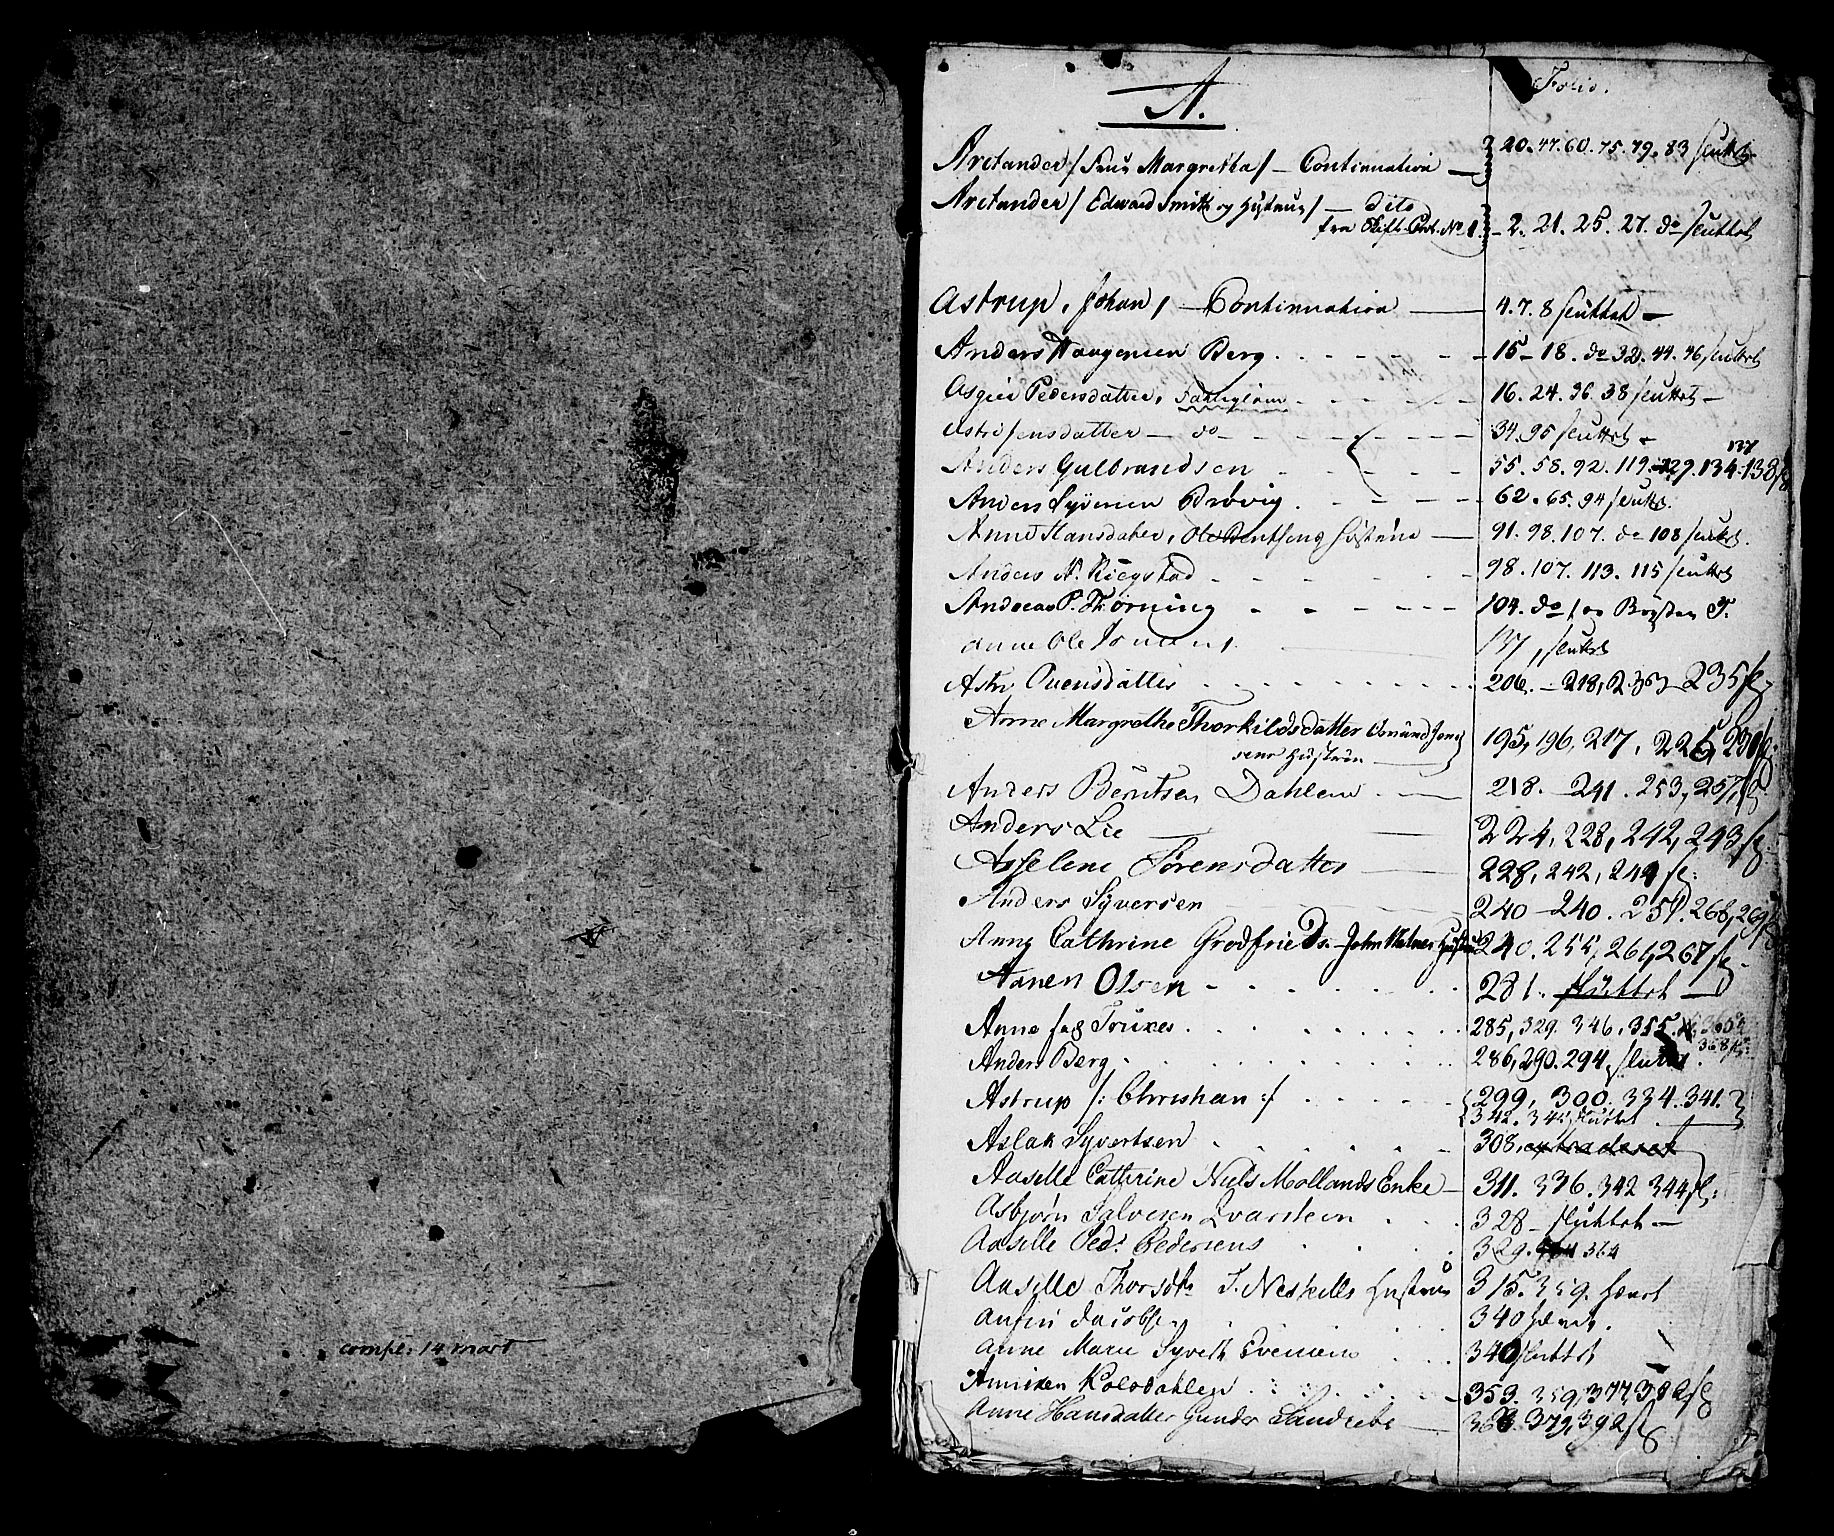 compl: 14 mart
A.
Folio.
Arctander /Frue Margretha/ — Continuation — 20. 47. 60. 75. 79. 83 sluttet
Arctander / Edward Smith og Hustrue / — dito
fra Skifte Prot. No 1. — 2. 21. 25. 27. do sluttet
Astrup, Johan, — Continuation — 4. 7. 8 sluttet —
Anders Berg. - - - 15 — 18. do 32. 44. 46 sluttet
Pedersdatter, - - - 16. 24. 36. 38 sluttet —
Jensdatter — do - - - 34. 95 sluttet —
137
Anders Gulbrandsen - - - 55. 58. 92. 119. 129. 134. 138 sl
Anders Syversen Brøvig. - - - 62. 65. 94 sluttet.
Anne Hansdatter, Ole Berntsens Hustrue — 91. 98. 107. do 108 sluttet.
Anders N. Riegstad - - - 98. 107. 113. 115 sluttet
Andreas P. Thorning - - - 104. do
Anne Ole 137, sluttet
Astri Ovensdatter - - - 206. — 218, 233 — 235 sl.
Anne Margrethe Thorkildsdatter Omund Jen
sens Hustrue — 195, 196, 217, 225, 230 sl.
Anders Berntsen Dahlene. — 218. — 241. 253, 257, sl.
Anders Lie — 224, 228, 242, 243, sl.
Asselene Sørensdatter — 228, 242, 244 sl:
Anders Syversen 240 — 240. 251. 268, 269 sl
Anne Cathrine Grodfrieds. John Hustrue 240. 255, 261, 267 sl.
Aanen Olsen - - - 281. sluttet —
Anne Jag Truxes. . . . 285, 329. 346, 355. 365
368 sl:
Anders Berg. . . . 286, 290. 294, sluttet.
Astrup /: Christian :/ . . . 299, 300. 334. 341.
342. 345 sluttet
Aslak Syvertsen . . . 308, extraderet
Aaselle Cathrine Niels Mollands Enke — 311. 336. 342 344 sl:
Asbjørn Salvesen Qvarstein . . . 328 — sluttet —
Aaselle Peds. Pedersens . . . 329. 364
Aaselle Thorsdtr T. Neskells Hustrue 315. 359. hævet
Anfin Jacobsen . . . 340 hævet.
Anne Marie Syvert Evensens . . . 340 sluttet
Anniken Kolsdahlen . . . 353. 359, 377, 382 sl
Anne Hansdatter Gunder Sandrebe — 368. 379, 392 sl